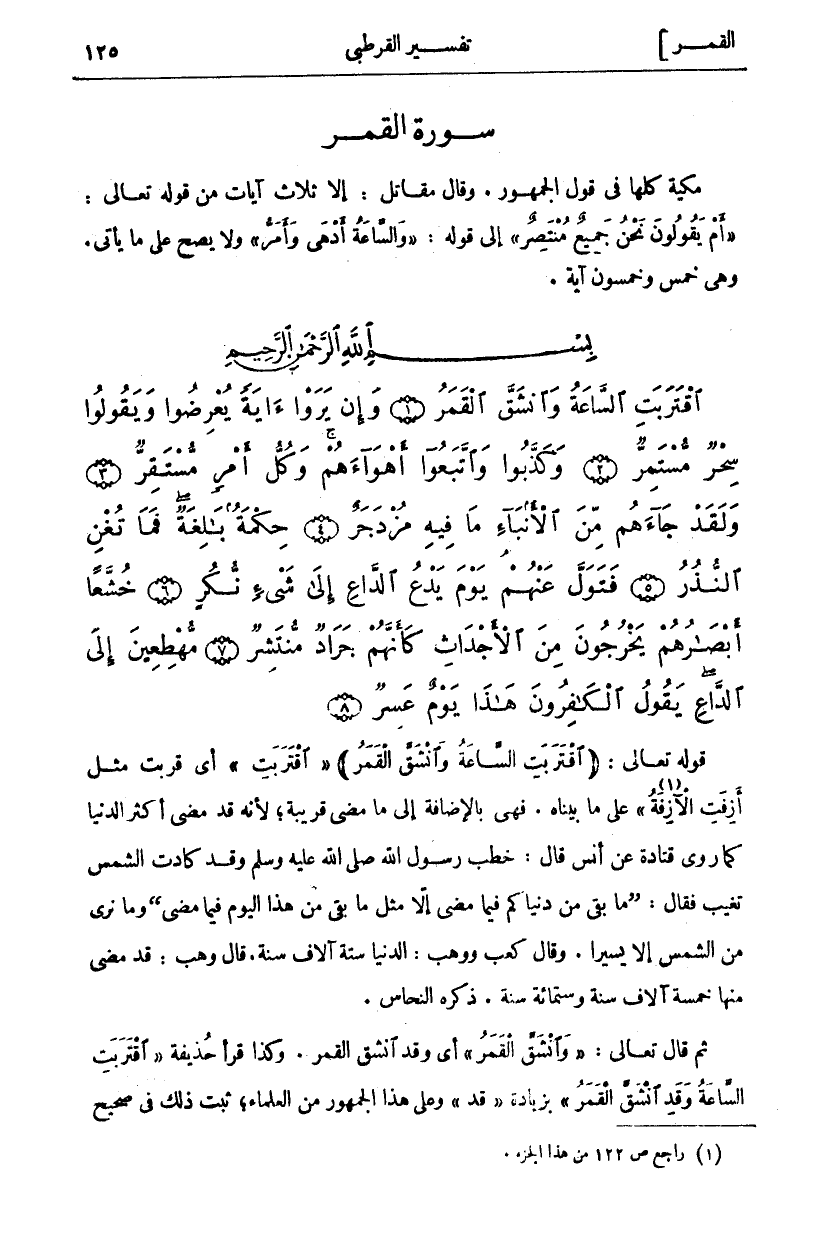 القمـــر ]    تفســـير القرطبى    ١٢٥
ســـورة القمـــر
مكية كلها فى قول الجمهـور . وقال مقـاتل : إلا ثلاث آيات من قوله تعـالى :
«أَمْ يَقُولُونَ نَحْنُ جَمِيعٌ مُنْتَصِرٌ» إلى قوله : «وَالسَّاعَةُ أَدْهَى وَأَمَرُّ» ولا يصح على ما يأتى.
وهى خمس وخمسون آية .
بِسْــــــمِ ٱللَّهِ ٱلرَّحْمَٰنِ ٱلرَّحِيمِ
ٱقْتَرَبَتِ ٱلسَّاعَةُ وَٱنشَقَّ ٱلْقَمَرُ ﴿١﴾ وَإِن يَرَوْا ءَايَةً يُعْرِضُوا وَيَقُولُوا
سِحْرٌ مُّسْتَمِرٌّ ﴿٢﴾ وَكَذَّبُوا وَٱتَّبَعُوٓا أَهْوَآءَهُمْ ۚ وَكُلُّ أَمْرٍ مُّسْتَقِرٌّ ﴿٣﴾
وَلَقَدْ جَآءَهُم مِّنَ ٱلْأَنۢبَآءِ مَا فِيهِ مُزْدَجَرٌ ﴿٤﴾ حِكْمَةٌۢ بَٰلِغَةٌ ۖ فَمَا تُغْنِ
ٱلنُّذُرُ ﴿٥﴾ فَتَوَلَّ عَنْهُمْ ۘ يَوْمَ يَدْعُ ٱلدَّاعِ إِلَىٰ شَىْءٍ نُّكُرٍ ﴿٦﴾ خُشَّعًا
أَبْصَٰرُهُمْ يَخْرُجُونَ مِنَ ٱلْأَجْدَاثِ كَأَنَّهُمْ جَرَادٌ مُّنتَشِرٌ ﴿٧﴾ مُّهْطِعِينَ إِلَى
ٱلدَّاعِ ۖ يَقُولُ ٱلْكَٰفِرُونَ هَٰذَا يَوْمٌ عَسِرٌ ﴿٨﴾
قوله تعـالى : ﴿ٱقْتَرَبَتِ السَّـاعَةُ وَٱنْشَقَّ الْقَمَرُ﴾ « ٱقْتَرَبَتِ » أى قربت مثـل
أَزِفَتِ الْآزِفَةُ(١)» على ما بيناه . فهى بالإضافة إلى ما مضى قريبة؛ لأنه قد مضى أكثر الدنيا
كما روى قتادة عن أنس قال : خطب رسول الله صلى الله عليه وسلم وقـد كادت الشمس
تغيب فقال : ”ما بقى من دنياكم فيما مضى إلّا مثل ما بقى من هذا اليوم فيما مضى“ وما نرى
من الشمس إلا يسيرا . وقال كعب ووهب : الدنيا ستة آلاف سنة. قال وهب : قد مضى
منها خمسة آلاف سنة وستمائة سنة . ذكره النحاس .
ثم قال تعـالى : « وَٱنْشَقَّ الْقَمَرُ » أى وقد ٱنشق القمر . وكذا قرأ حُذيفة « ٱقْتَرَبَتِ
السَّاعَةُ وَقَدِ ٱنْشَقَّ الْقَمَرُ » بزيادة « قد » وعلى هذا الجمهور من العلماء؛ ثبت ذلك فى صحيح
(١) راجع ص ١٢٢ من هذا الجزء .